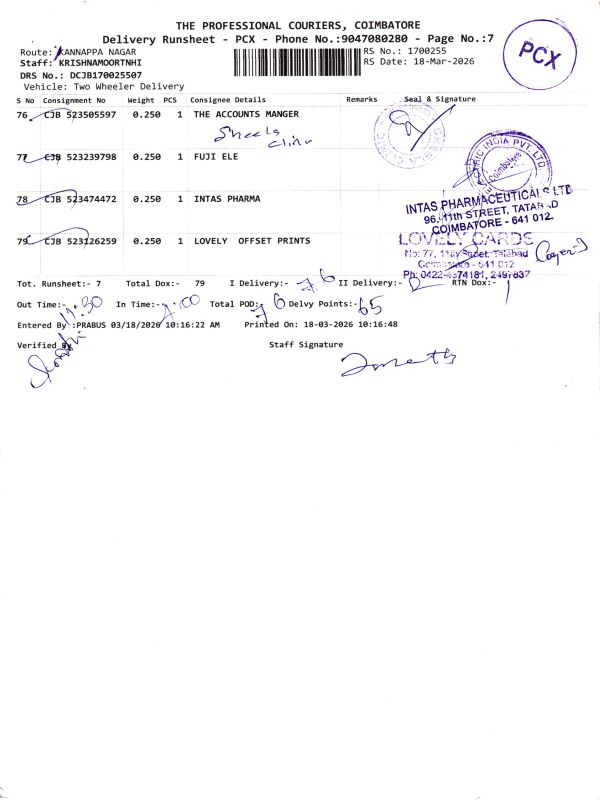 THE PROFESSIONAL COURIERS, COIMBATORE
Delivery Runsheet - PCX - Phone No.:9047080280 - Page No.:7
PCX
Route: KANNAPPA NAGAR
RS No.: 1700255
Staff: KRISHNAMOORTNHI
RS Date: 18-Mar-2026
DRS No.: DCJB170025507
Vehicle: Two Wheeler Delivery
S No Consignment No Weight PCS Consignee Details Remarks Seal & Signature
76 CJB 523505597 0.250 1 THE ACCOUNTS MANGER
Sheela
Clinic
77 CJB 523239798 0.250 1 FUJI ELE
RIC INDIA PVT. LTD.
Coimbatore
78 CJB 523474472 0.250 1 INTAS PHARMA
INTAS PHARMACEUTICALS LTD
96, 11th STREET, TATABAD
COIMBATORE - 641 012.
79 CJB 523126259 0.250 1 LOVELY OFFSET PRINTS
LOVELY CARDS
No: 77, 11th Street, Tatabad
Coimbatore - 641 012
Ph: 0422-4374181, 2497637
Tot. Runsheet:- 7 Total Dox:- 79 I Delivery:- 76 II Delivery:- RTN Dox:-
Out Time:- 11:30 In Time:- 7:00 Total POD:- 76 Delvy Points:- 65
Entered By :PRABUS 03/18/2026 10:16:22 AM Printed On: 18-03-2026 10:16:48
Verified By Staff Signature